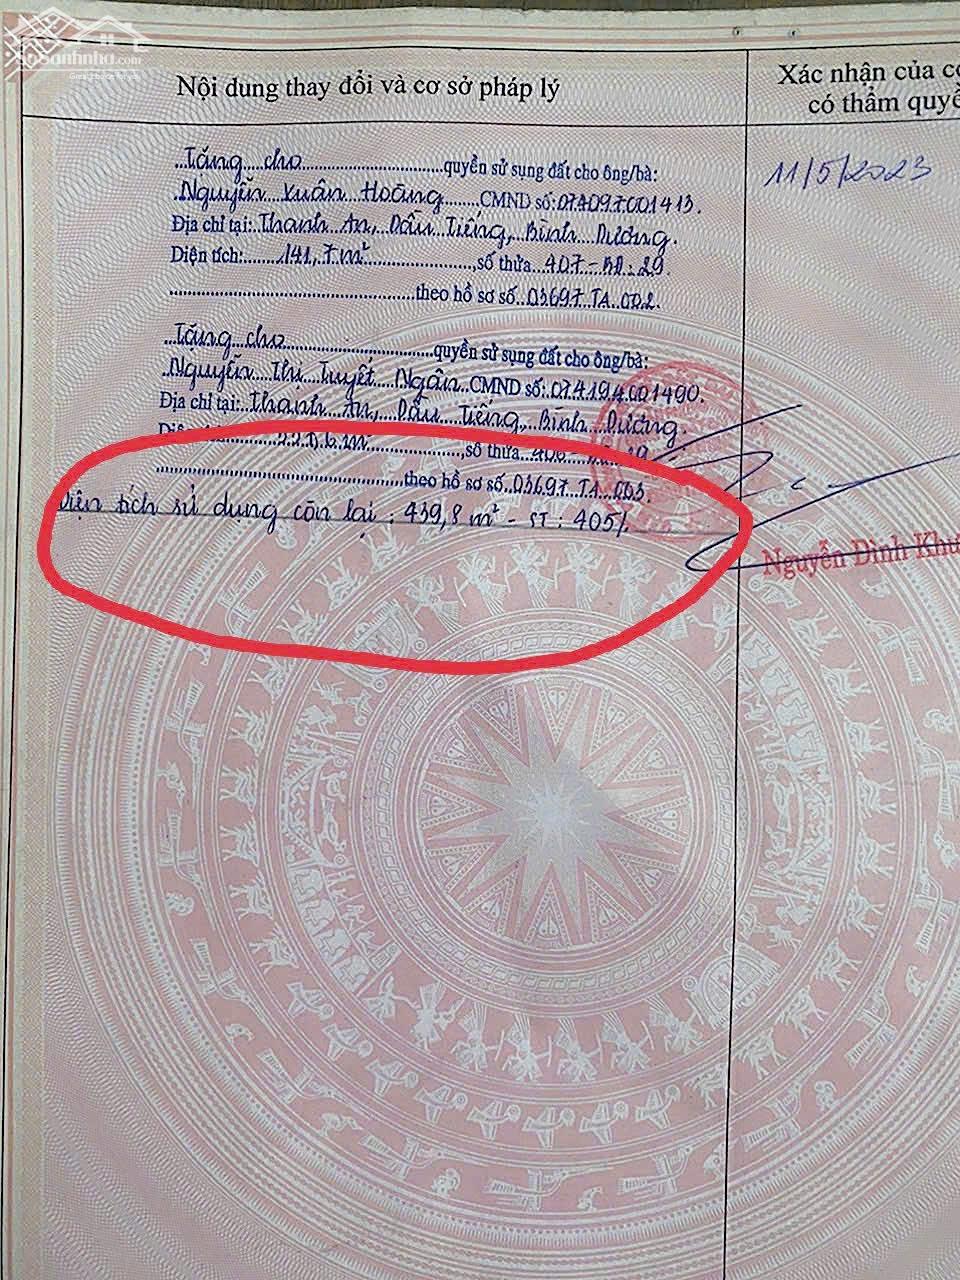 SoSanhnha.com
Nội dung thay đổi và cơ sở pháp lý
Xác nhận của cơ
có thẩm quyề
...Tặng...cho...quyền sử sụng đất cho ông/bà:
Nguyễn Xuân Hoàng...CMND số:074097001413.
Địa chỉ tại:...Thanh An, Dầu Tiếng, Bình Dương.
Diện tích:...141,7m²...,số thửa...407-...:29
...theo hồ sơ số...03697.TA.002
11/5/2023
Tặng cho...quyền sử sụng đất cho ông/bà:
Nguyễn Thị Tuyết Ngân...CMND số:074194001490.
Địa chỉ tại:...Thanh An, Dầu Tiếng, Bình Dương.
,số thửa
...theo hồ sơ số...03697.TA.003.
Diện tích sử dụng còn lại : 439,8 m² - ST : 405/.
Nguyễn Đình Khư